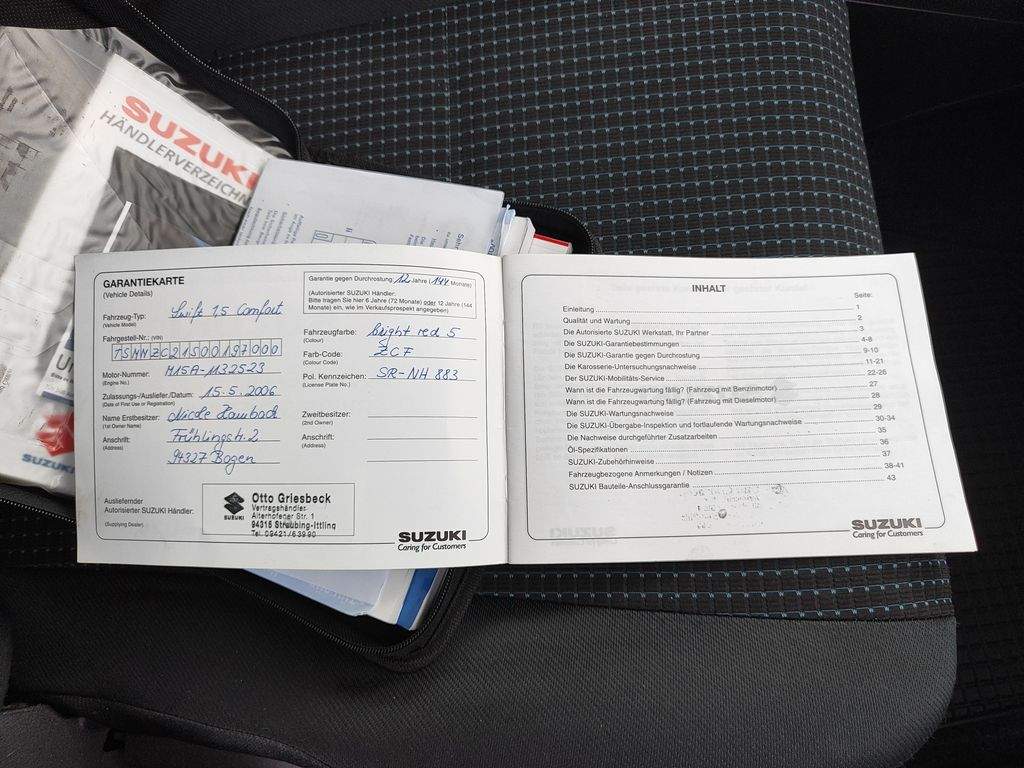 SUZUKI
HÄNDLERVERZEICHN
SUZUKI
GARANTIEKARTE
(Vehicle Details)
Garantie gegen Durchrostung: 12 Jahre (144 Monate)
(Autorisierter SUZUKI Händler:
Bitte tragen Sie hier 6 Jahre (72 Monate) oder 12 Jahre (144
Monate) ein, wie im Verkaufsprospekt angegeben)
Fahrzeug-Typ: Swift 1,5 Comfort
(Vehicle Model)
Fahrgestell-Nr.: (VIN)
TSMMZC21S00197000
Motor-Nummer: M15A-1132523
(Engine No.)
Zulassungs-/Ausliefer./Datum: 15.5.2006
(Date of First Use or Registration)
Name Erstbesitzer: Nicole
(1st Owner Name)
Anschrift: Frühlingstr. 2
(Address)
94327 Bogen
Fahrzeugfarbe: bright red 5
(Colour)
Farb-Code: ZCF
(Colour Code)
Pol. Kennzeichen: SR-NH 883
(License Plate No.)
Zweitbesitzer:
(2nd Owner)
Anschrift:
(Address)
Ausliefernder
Autorisierter SUZUKI Händler:
(Supplying Dealer)
SUZUKI
Otto Griesbeck
Vertragshändler
Alterhofener Str. 1
94315 Straubing-Ittling
Tel. 09421/63990
SUZUKI
Caring for Customers
INHALT
Seite:
Einleitung 1
Qualität und Wartung 2
Die Autorisierte SUZUKI Werkstatt, Ihr Partner 3
Die SUZUKI-Garantiebestimmungen 4-8
Die SUZUKI-Garantie gegen Durchrostung 9-10
Die Karosserie-Untersuchungsnachweise 11-21
Der SUZUKI-Mobilitäts-Service 22-26
Wann ist die Fahrzeugwartung fällig? (Fahrzeug mit Benzinmotor) 27
Wann ist die Fahrzeugwartung fällig? (Fahrzeug mit Dieselmotor) 28
Die SUZUKI-Wartungsnachweise 29
Die SUZUKI-Übergabe-Inspektion und fortlaufende Wartungsnachweise 30-34
Die Nachweise durchgeführter Zusatzarbeiten 35
Öl-Spezifikationen 36
SUZUKI-Zubehörhinweise 37
Fahrzeugbezogene Anmerkungen / Notizen 38-41
SUZUKI Bauteile-Anschlussgarantie 43
SUZUKI
Caring for Customers